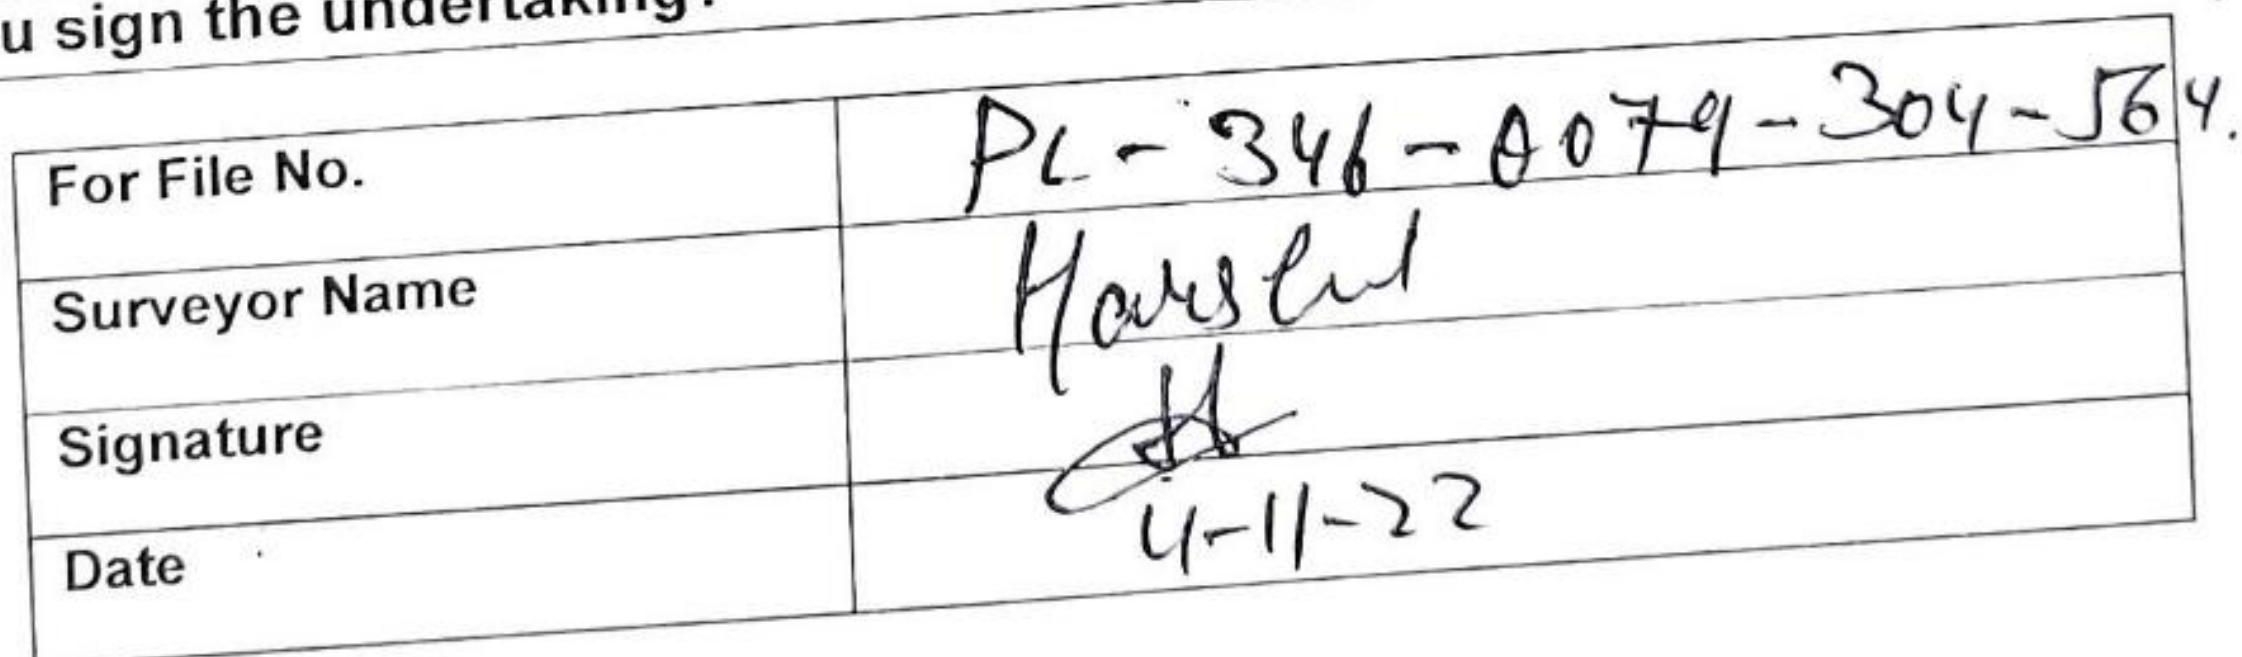 u sign the undertaking?
For File No. PL-346-A079-304-564.
Surveyor Name Harshit
Signature
Date 4-11-22